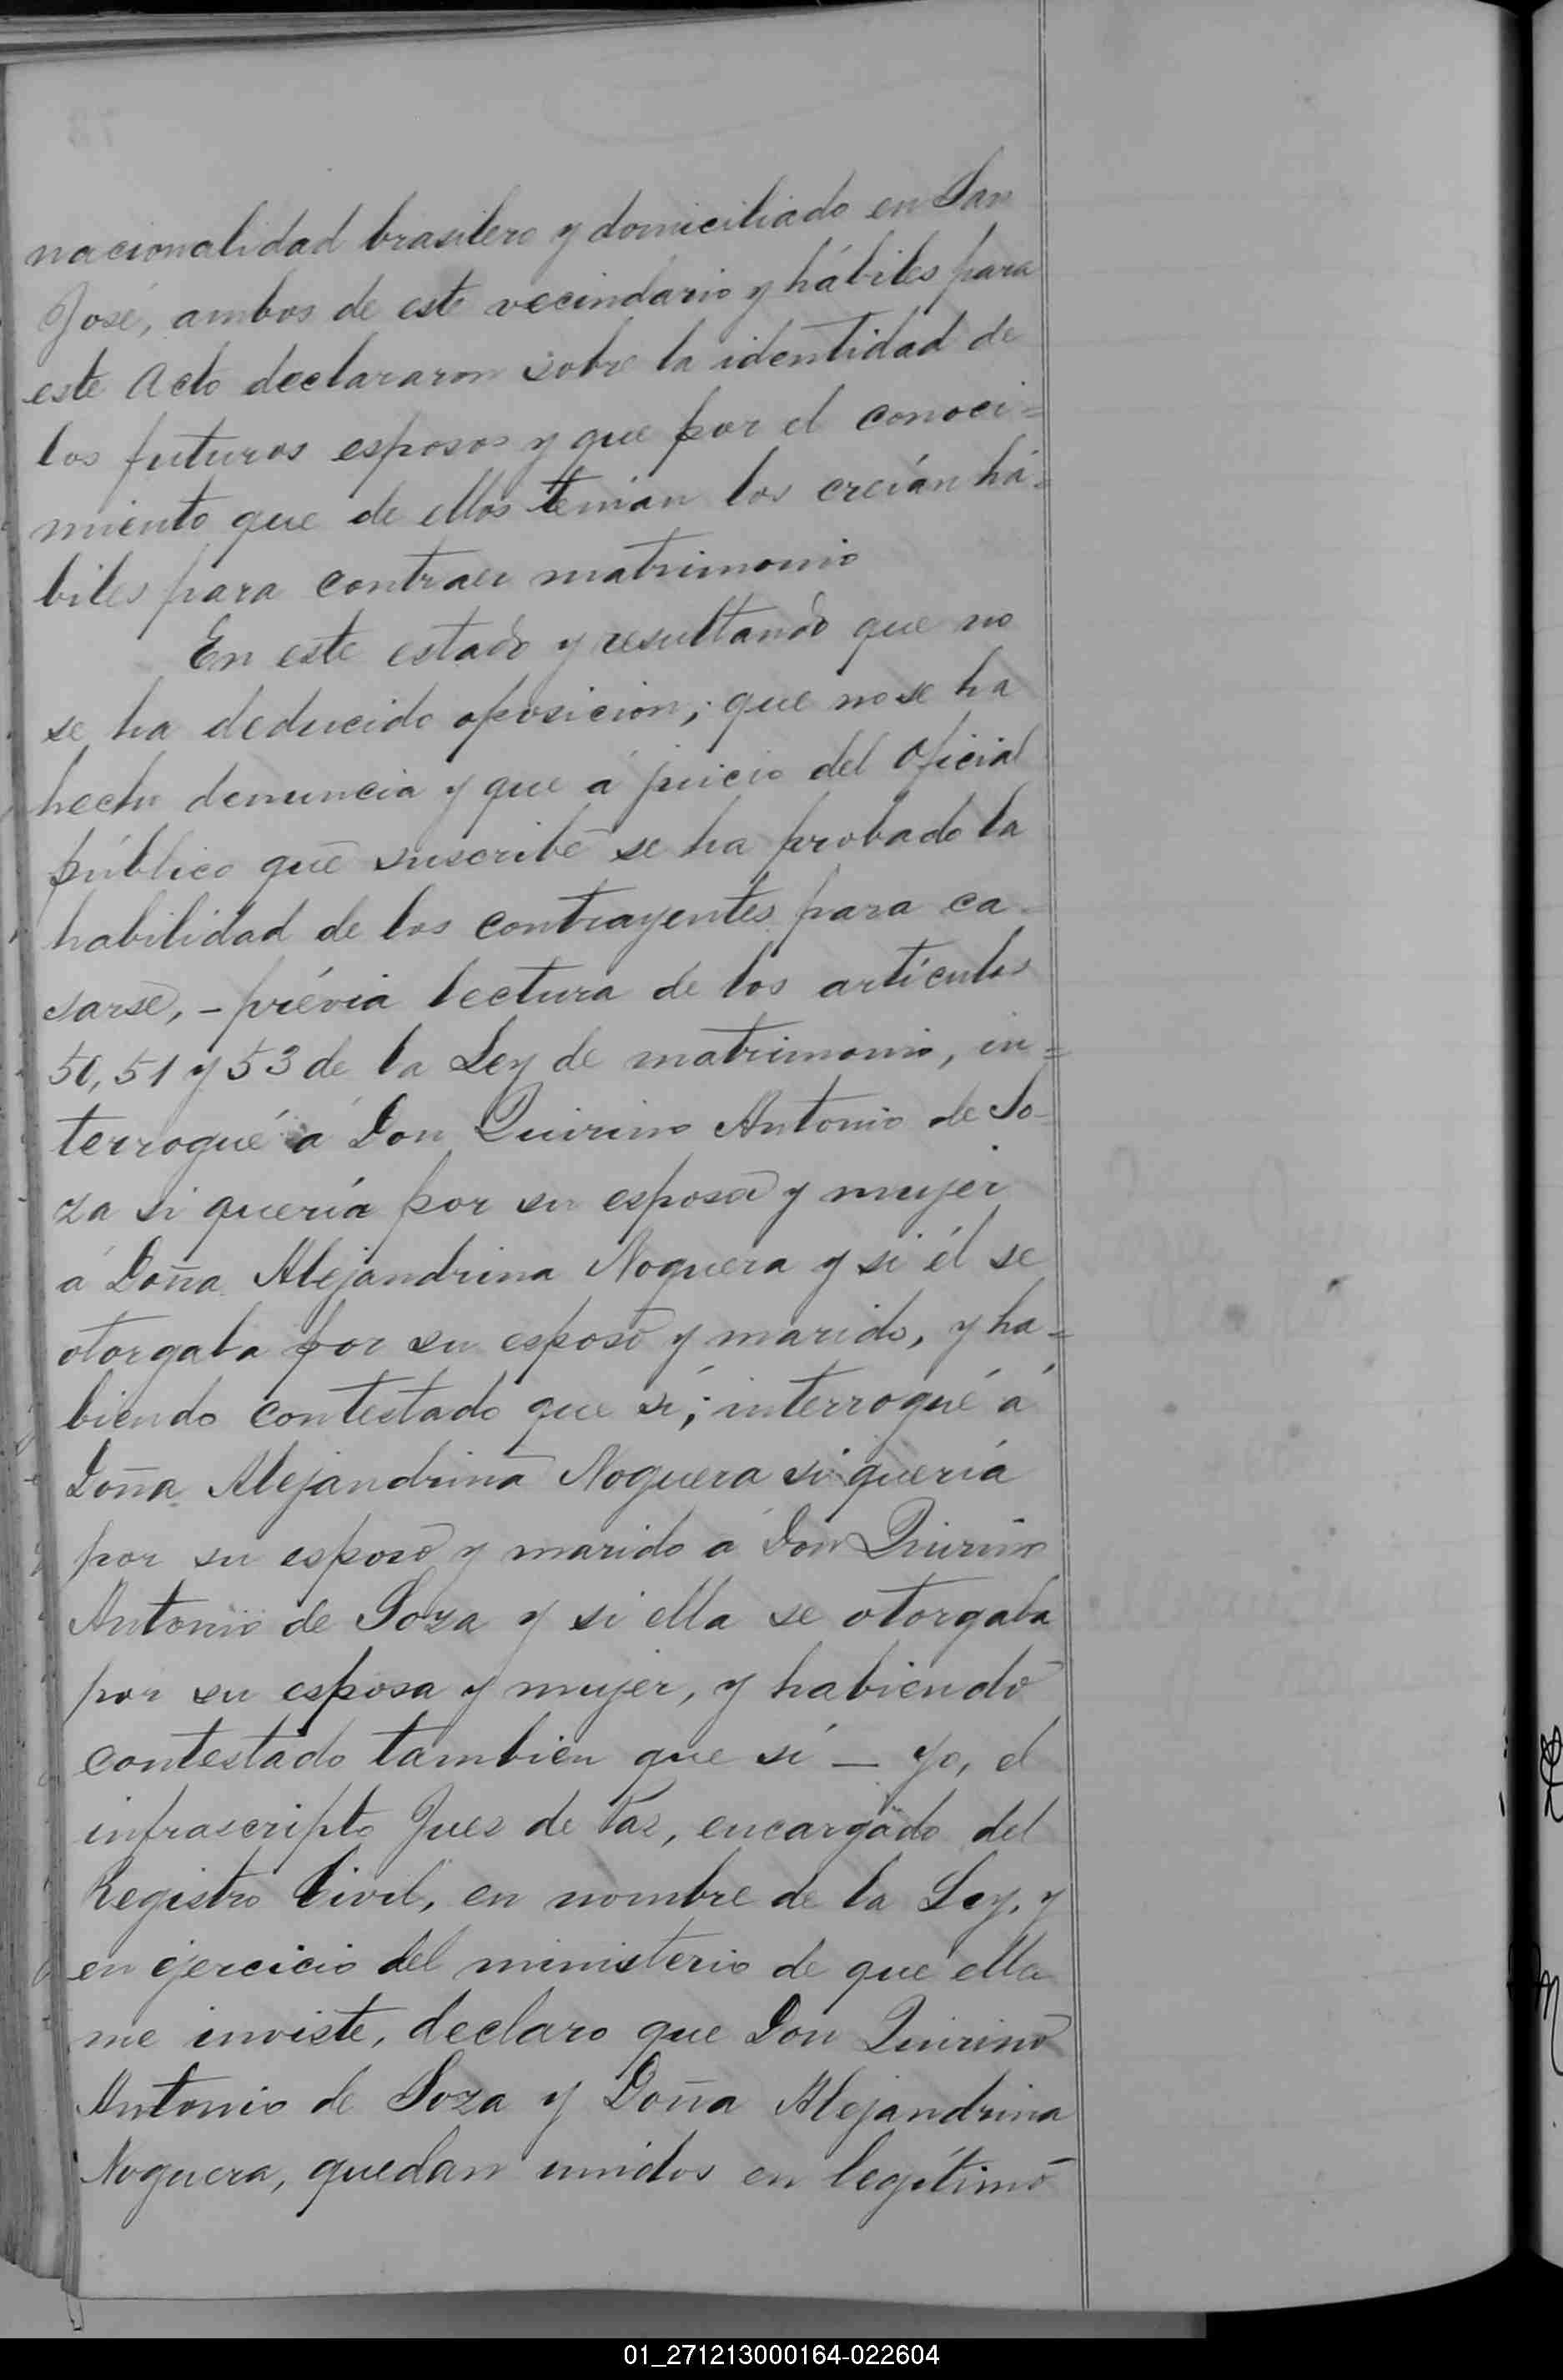 nacionalidad brasilero y domiciliado en San
José, ambos de este vecindario y hábiles para
este Acto declararon sobre la identidad de
los futuros esposos y que por el conoci=
miento que de ellos tenian los creían há=
biles para contraer matrimonio
En este estado y resultando que no
se ha deducido oposicion; que no se ha
hecho denuncia y que á juicio del Oficial
público que suscribe se ha probado la
habilidad de los contrayentes para ca-
sarse, - prévia lectura de los artículos
50, 51 y 53 de la Ley de matrimonio, in=
terrogué á Don Quirino Antonio de So-
za si quería por su esposa y mujer
á Doña Alejandrina Noguera y si él se
otorgaba por su esposo y marido, y ha=
biendo contestado que sí; interrogué á
Doña Alejandrina Noguera si quería
por su esposo y marido á Don Quirino
Antonio de Soza y si ella se otorgaba
por su esposa y mujer, y habiendo
contestado tambien que sí — yo, el
infrascripto Juez de Paz, encargado del
Registro Civil, en nombre de la Ley, y
en ejercicio del ministerio de que ella
me inviste, declaro que Don Quirino
Antonio de Soza y Doña Alejandrina
Noguera, quedan unidos en legítimo
01_271213000164-022604